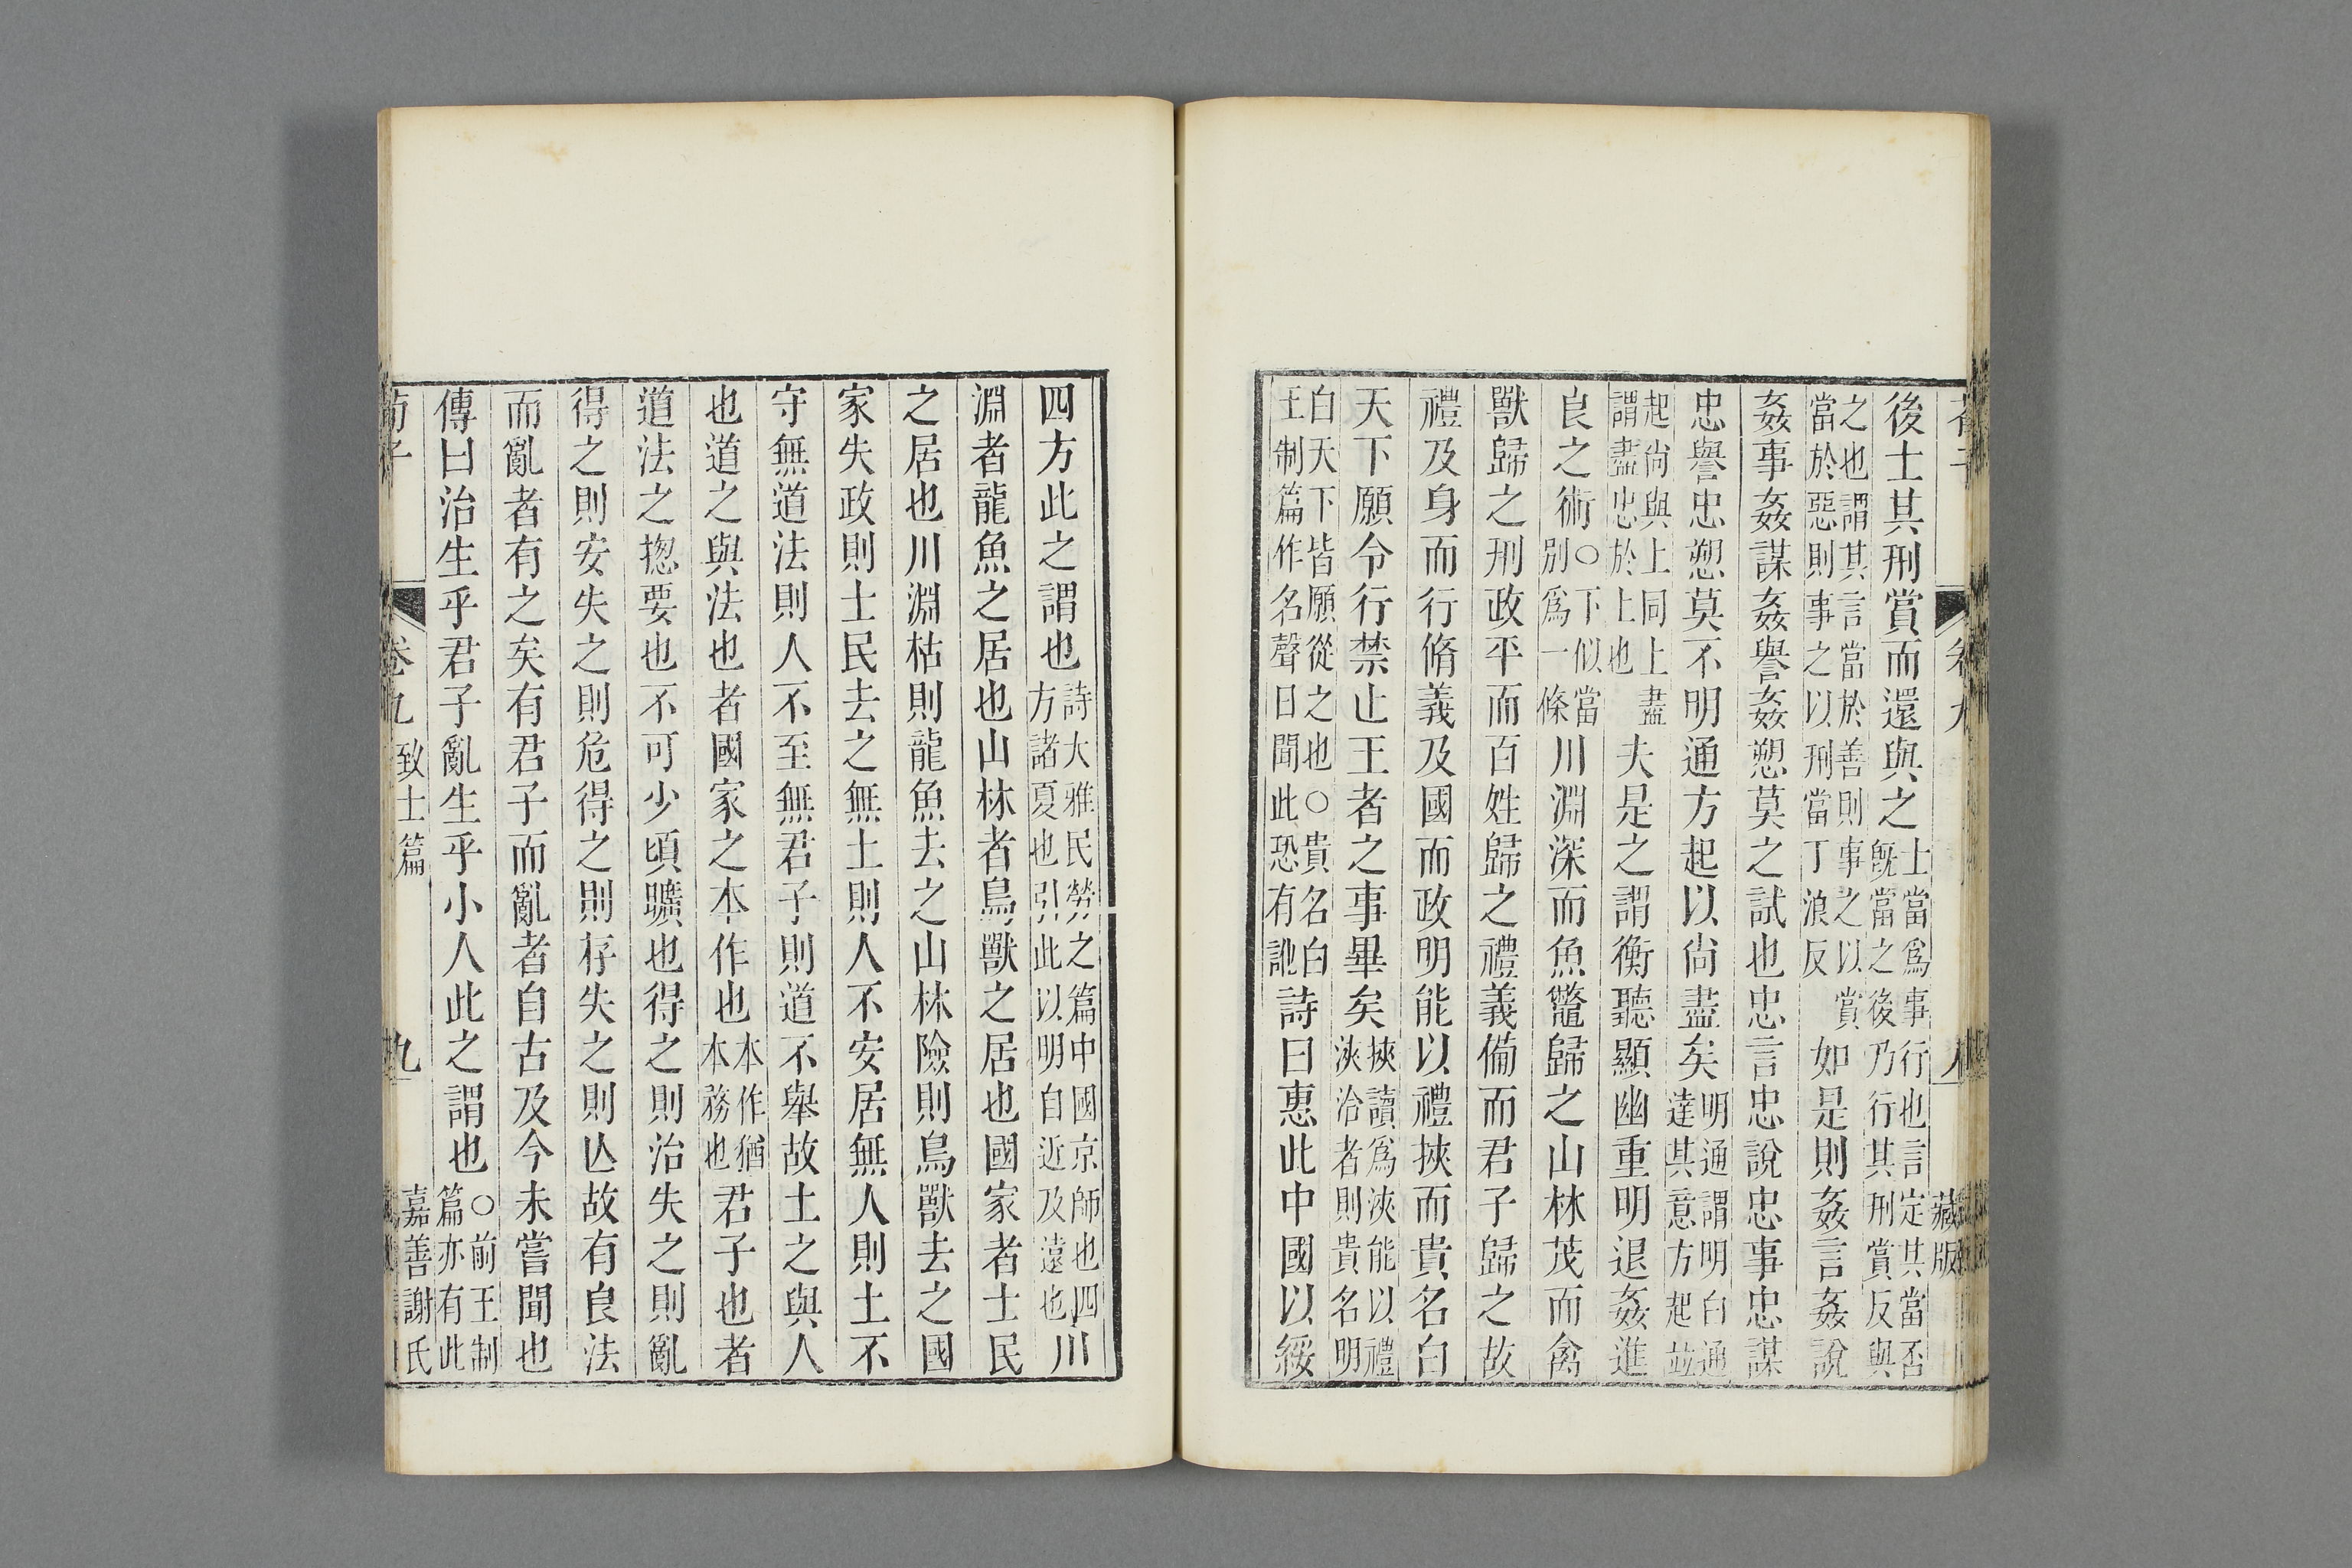 荀子 卷九 八 藏版
後士其刑賞而還與之士當爲事行也言定其當否既當之後乃行其刑賞反與
之也謂其言當於善則事之以賞當於惡則事之以刑當丁浪反如是則姦言姦說
姦事姦謀姦譽姦愬莫之試也忠言忠說忠事忠謀
忠譽忠愬莫不明通方起以尚盡矣明通謂明白通達其意方起並
起尚與上同上盡謂盡忠於上也夫是之謂衡聽顯幽重明退姦進
良之術○下似當別爲一條川淵深而魚鼈歸之山林茂而禽
獸歸之刑政平而百姓歸之禮義僃而君子歸之故
禮及身而行脩義及國而政明能以禮挾而貴名白
天下願令行禁止王者之事畢矣挾讀爲浹能以禮浹洽者則貴名明
白天下皆願從之也○貴名白王制篇作名聲日聞此恐有訛詩曰惠此中國以綏
四方此之謂也詩大雅民勞之篇中國京師也四方諸夏也引此以明自近及遠也川
淵者龍魚之居也山林者鳥獸之居也國家者士民
之居也川淵枯則龍魚去之山林險則鳥獸去之國
家失政則士民去之無土則人不安居無人則土不
守無道法則人不至無君子則道不舉故土之與人
也道之與法也者國家之本作也本作猶本務也君子也者
道法之揔要也不可少頃曠也得之則治失之則亂
得之則安失之則危得之則存失之則亾故有良法
而亂者有之矣有君子而亂者自古及今未嘗聞也
傳曰治生乎君子亂生乎小人此之謂也○前王制篇亦有此
荀子 卷九 致士篇 九 嘉善謝氏